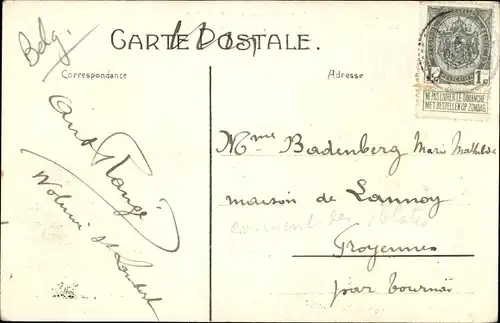 Belg.
CARTE POSTALE.
Correspondance
Adresse
1c 1c
NE PAS LIVRER LE DIMANCHE
NIET BESTELLEN OP ZONDAG
Mme Badenberg Marie Mathilde
maison de Lannoy
couvent des oblates
Froyennes
par Tournai
Woluwe St Lambert